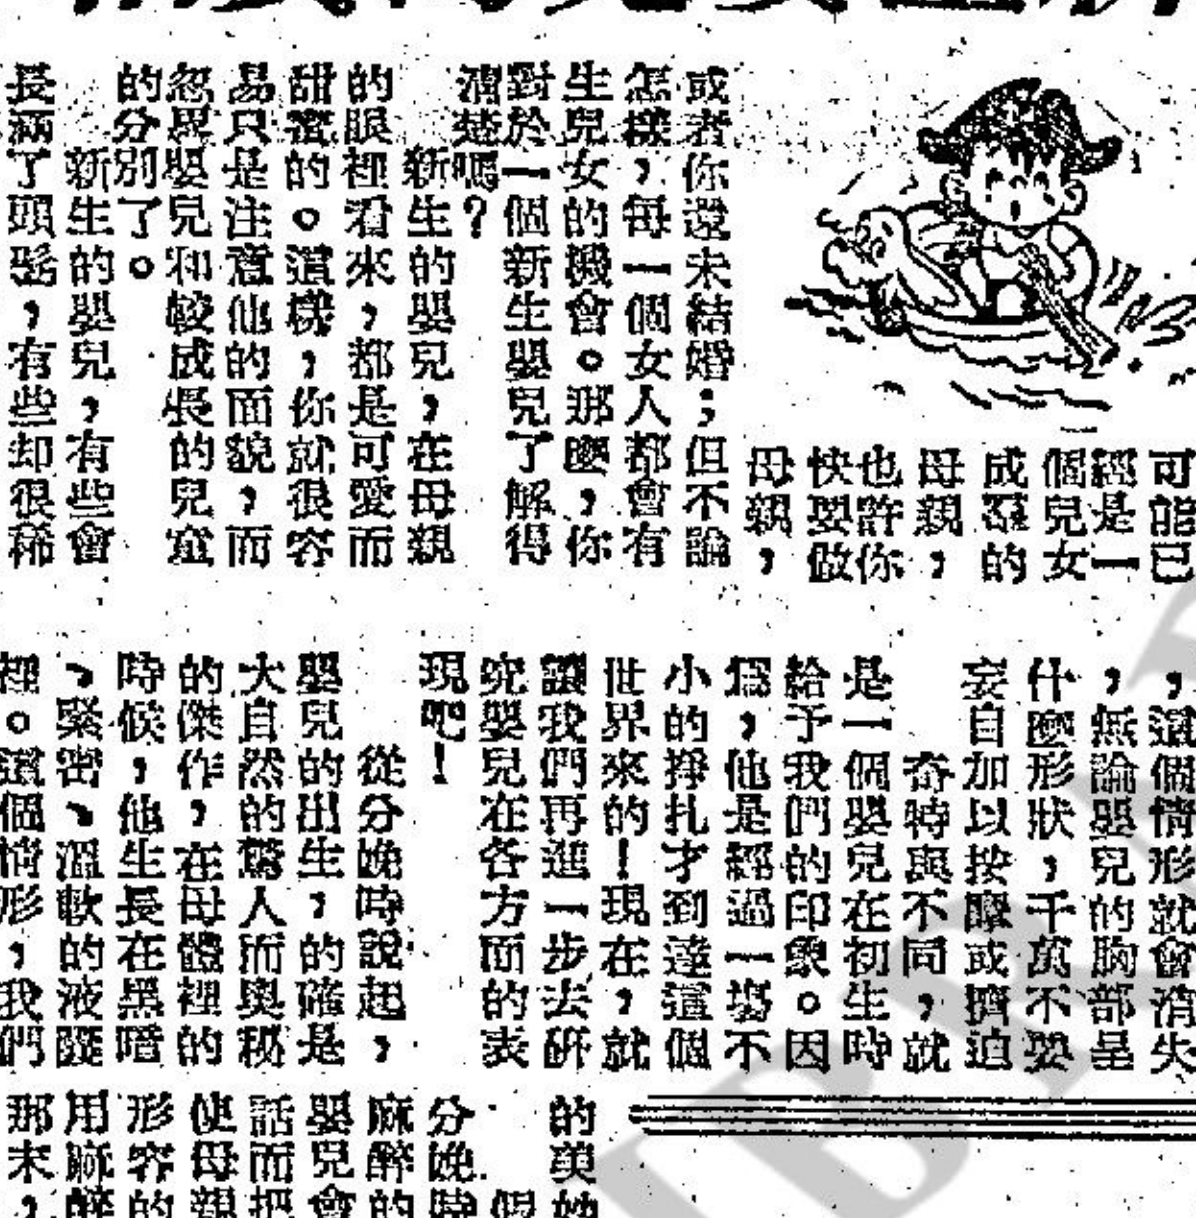 可能已
經是一
個兒女
成羣的
母親，
也許你
快要做
母親，
或者你還未結婚；但不論
怎樣，每一個女人都會有
生兒女的機會。那麼，你
對於一個新生嬰兒了解得
清楚嗎？
新生的嬰兒，在母親
的眼裡看來，都是可愛而
甜蜜的。這樣，你就很容
易只是注意他的面貌，而
忽畧嬰兒和較成長的兒童
的分別了。
新生的嬰兒，有些會
長滿了頭髮，有些却很稀
，這個情形就會消失
，無論嬰兒的胸部呈
什麼形狀，千萬不要
妄自加以按摩或擠迫
奇特與不同，就
是一個嬰兒在初生時
給予我們的印象。因
爲，他是經過一塲不
小的掙扎才到達這個
世界來的！現在，就
讓我們再進一步去研
究嬰兒在各方面的表
現吧！
從分娩時說起，
嬰兒的出生，的確是
大自然的驚人而奧秘
的傑作，在母體裡的
時候，他生長在黑暗
、緊密、溫軟的液體
裡。這個情形，我們
的美妙
假
分娩時
麻醉的
嬰兒會
話而把
使母親
形容的
用麻醉
那末，